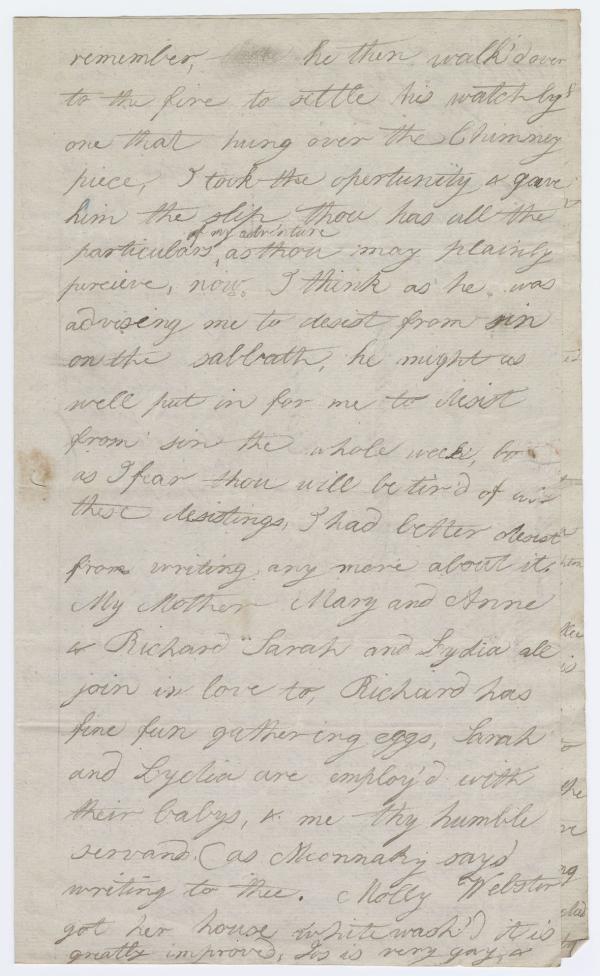 remember, he then walk'd over
to the fire to settle his watch by
one that hung over the Chimney
piece, I took the opertunity & gave
him the slip, thou has all the
of my adventure
particulars, as thou may plainly
percieve, now. I think as he was
adviseing me to desist from sin
on the sabbath, he might as
well put in for me to desist
from sin the whole week, but
as I fear thou will be tir'd of
these desistings, I had better desist
from writing any more about it.
My Mother Mary and Anne
& Richard Sarah and Lydia all
join in love to, Richard has
fine fun gathering eggs, Sarah
and Lydia are employ'd with
their babys, & me thy humble
servand (as says
writing to thee. Molly Webster
got her house whitewash'd it is
greatly improved, is very gay, &